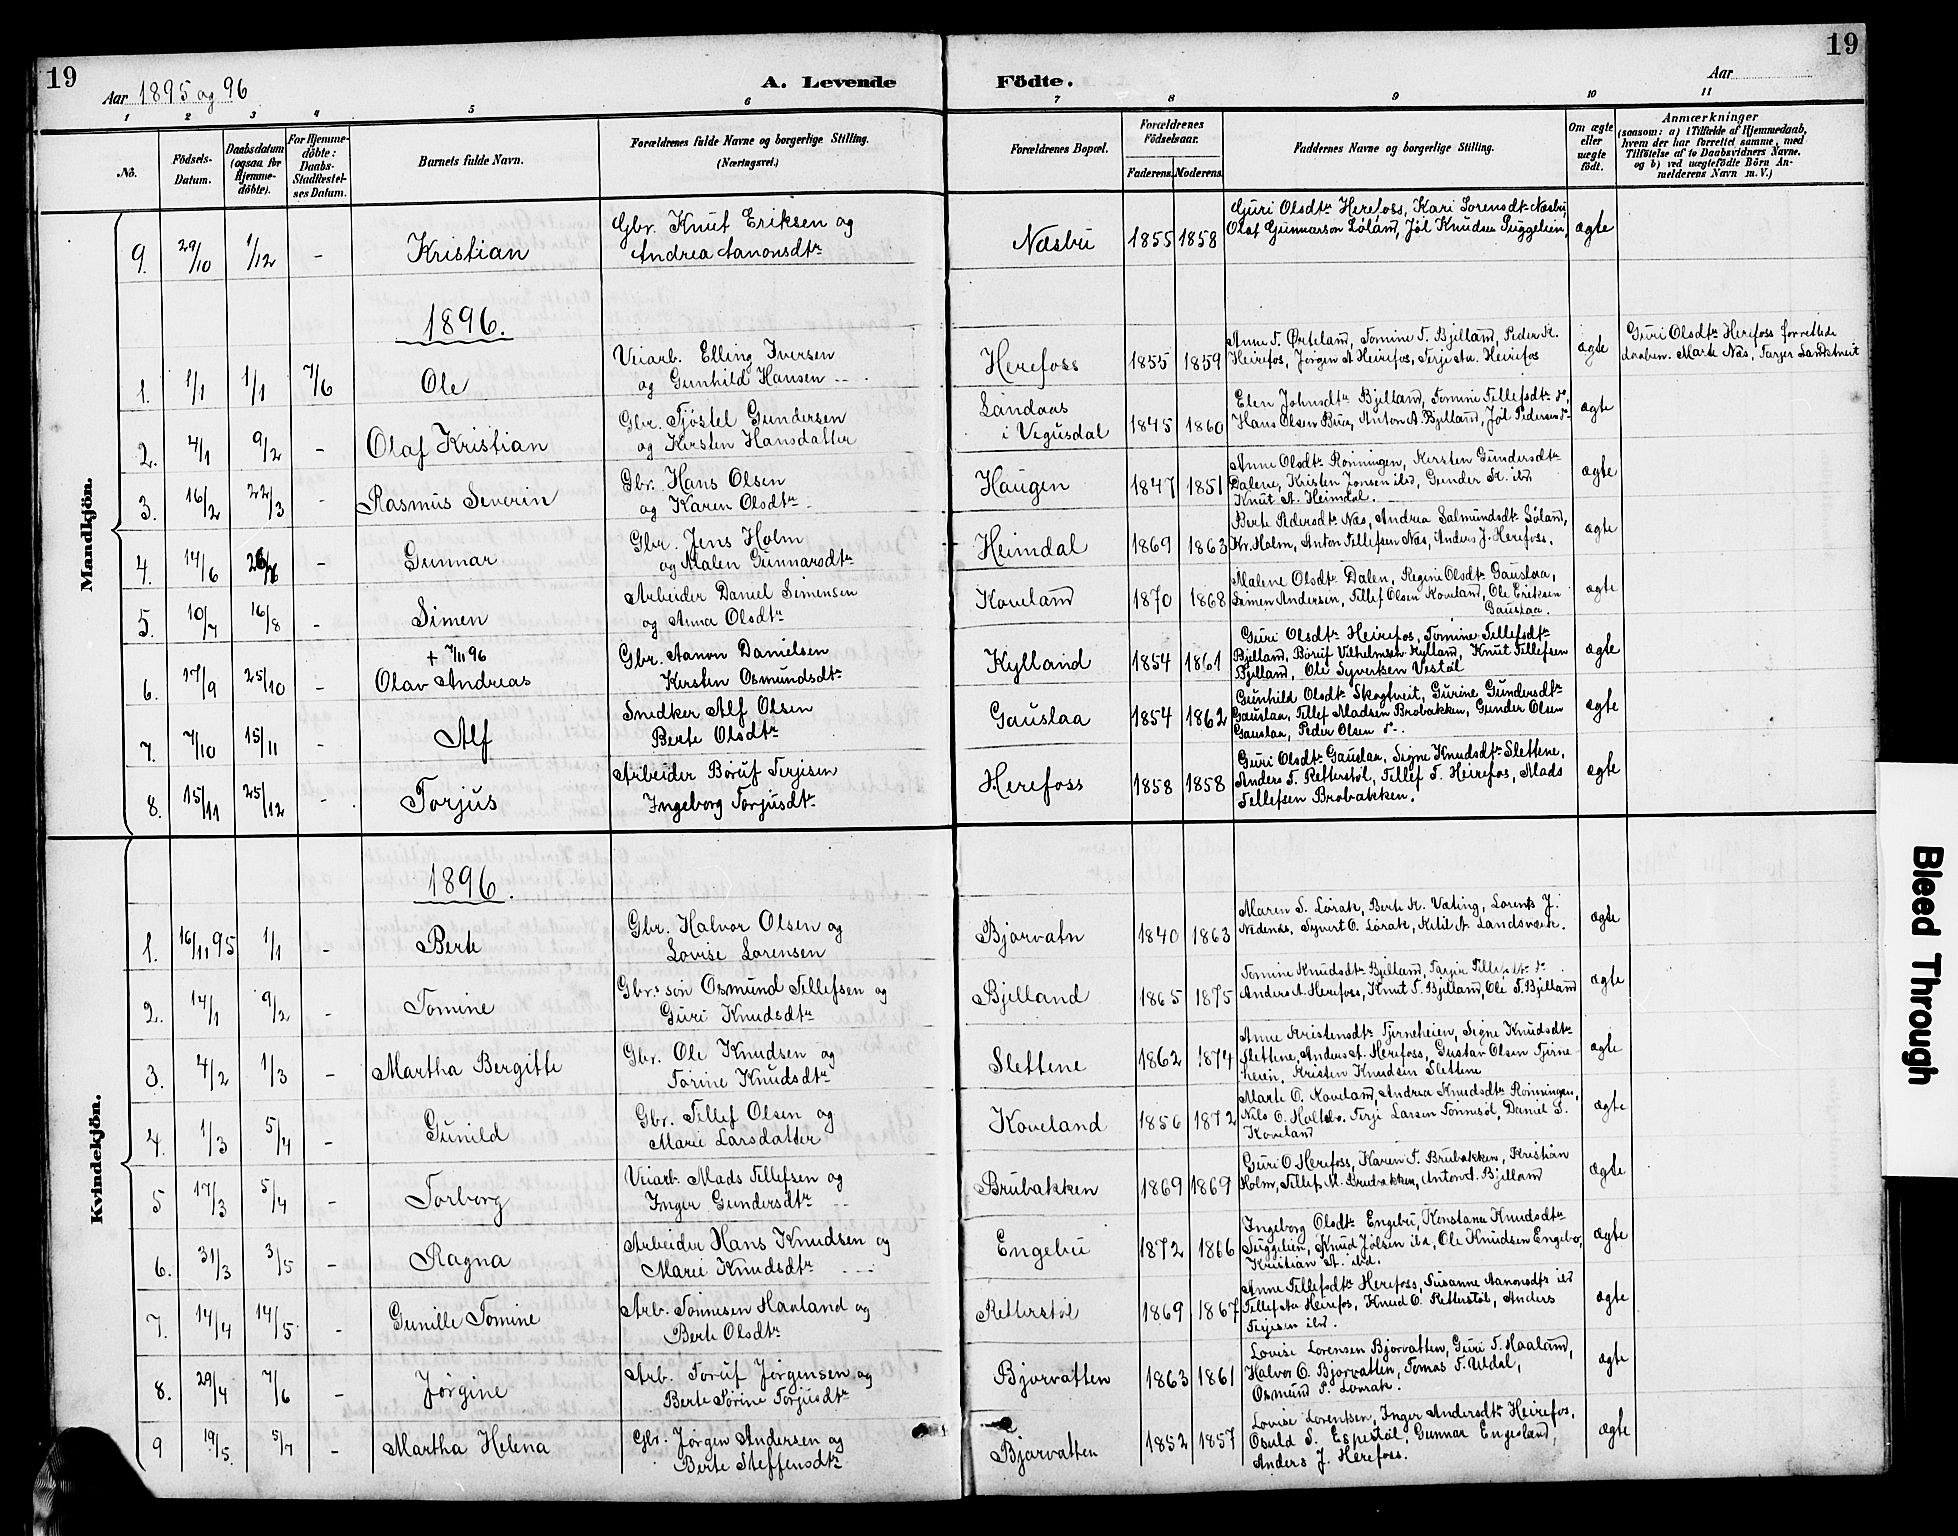 19
Aar 1895 og 96
A. Levende Födte.
Aar
19
1 2 3 4 5 6 7 8 9 10 11
No.
Födsels-Datum.
Daabsdatum (ogsaa for Hjemme-döbte).
For Hjemme-döbte: Daabs-Stadfestel-ses Datum.
Barnets fulde Navn.
Forældrenes fulde Navne og borgerlige Stilling. (Næringsvei.)
Forældrenes Bopæl.
Forældrenes Födselsaar.
Faderens. Moderens.
Faddernes Navne og borgerlige Stilling.
Om ægte eller uægte födt.
Anmærkninger
(saasom: a) i Tilfælde af Hjemmedaab, hvem der har forrettet samme, med Tilföielse af to Daabsvidners Navne. og b) ved uægtefödte Börn An-melderens Navn m. V.)
Mandkjön.
9. 29/10 1/12 - Kristian
Gbr. Knut Eriksen og
Andrea Aanonsdtr
Næsbu 1855 1858
Guri Olsdtr Herefoss, Kari Sorensdtr Næsbu,
Olaf Gunnarson Løland, Jøl Knudsen Tuggelien,
ægte
1896.
1. 1/1 1/1 7/6 Ole
Veiarb. Elling Iversen
og Gunhild Hansen
Herefoss 1855 1859
Anne T. Ørteland, Tomine T. Bjelland, Peder K.
Heirefos, Jørgen A Heirefos, Terje Aa. Heirefos
ægte
Guri Olsdtr Herefoss forrettede
daaben. Marte Næs, Tarjer Landtveit
2. 4/1 9/2 - Olaf Kristian
Gbr. Tjøstel Gundersen
og Kirsten Hansdatter
Landaas
i Vegusdal 1845 1860
Elen Johnsdtr Bjelland, Tomine Tellefsdtr do,
Hans Olsen Bua, Anton A. Bjelland, Jøl Pedersen do
ægte
3. 16/2 22/3 - Rasmus Severin
Gbr. Hans Olsen
og Karen Olsdtr
Haugen 1847 1851
Anne Olsdtr Rønningen, Kersten Gundersdtr
Dalene, Kristen Jonsen ibd, Gunder K. ibd
Knut A. Heimdal.
ægte
4. 14/6 26/7 - Gunnar
Gbr. Jens Holm
og Malen Gunnarsdtr
Heimdal 1869 1863
Berte Pedersdtr Næs, Andrea Salmundsdtr Løland,
Kr. Holm, Anton Tellefsen Næs, Anders J. Herefoss.
ægte
5. 10/7 16/8 - Simen
Arbeider Daniel Simensen
og Anna Olsdtr
Koveland 1870 1868
Malene Olsdtr Dalen, Regine Olsdtr Gauslaa,
Simen Andersen, Tellef Olsen Koveland, Ole Eriksen
Gauslaa.
ægte
6. 17/9 25/10 -
+ 7/11 96
Olav Andreas
Gbr. Aanon Danielsen
Kirsten Osmundsdtr
Kylland 1854 1861
Guri Olsdtr Heirefos, Tomine Tellefsdtr
Bjelland, Boruf Vilhelmsen Kylland, Knut Tellefsen
Bjelland, Ole Syvertsen Vestøl
ægte
7. 7/10 15/11 - Alf
Snedker Alf Olsen
Berte Olsdtr
Gauslaa 1854 1862
Gunhild Olsdtr Skogtveit, Gurine Gundersdtr
Gauslaa, Tellef Madsen Brobakken, Gunder Olsen
Gauslaa, Peder Olsen do.
ægte
8. 15/11 25/12 - Torjus
Arbeider Boruf Terjisen
Ingeborg Torjusdtr
Herefoss 1858 1858
Guri Olsdtr Gauslaa, Signe Knudsdtr Slettene,
Anders T. Retterstøl, Tellef T. Heirefos, Mads
Tellefsen Brobakken.
ægte
Kvindekjön.
1896.
1. 16/11 95 1/1 - Berte
Gbr. Halvor Olsen og
Lovise Lorensen
Bjorvatn 1840 1863
Maren S. Lørak, Berte K. Væting, Lorents J.
Nedenes, Syvert O. Lorak, Ketil A. Landsværk.
ægte
2. 14/1 9/2 - Tomine
Gbr. søn Osmund Tellefsen og
Guri Knudsdtr
Bjelland 1865 1875
Tomine Knudsdtr Bjelland, Tarjer do
Anders A. Herefoss, Knut T. Bjelland, Ole T. Bjelland
ægte
3. 4/2 1/3 - Martha Bergitte
Gbr. Ole Knudsen og
Torine Knudsdtr
Slettene 1862 1874
Anne Kristensdtr Tjirneheien, Signe Knudsdtr
Slettene, Anders A. Herefoss, Gustav Olsen Tjirne-
heien, Kristen Knudsen Slettene
ægte
4. 1/3 5/4 - Gunild
Gbr. Tellef Olsen og
Marie Larsdatter
Koveland 1856 1872
Marte O. Koveland, Andrea Knudsdtr Rønningen,
Nils O. Terje Larsen Daniel S.
Koveland
ægte
5 17/3 5/4 - Torborg
Veiarb. Mads Tellefsen og
Inger Gundersdtr
Brubakken 1869 1869
Guri O. Herefoss, Karen T. Brubakken, Kristian
Holm, Tellef M. Brubakken, Anton A. Bjelland
ægte
6. 31/3 3/5 - Ragna
Arbeider Hans Knudsen og
Marie Knudsdtr
Engebu 1872 1866
Ingeborg Olsdtr Engebu, Konstanse Knudsdtr
Tuggelien, Knud Jølsen ibd, Ole Knudsen Engebo,
Kristian A. ibd.
ægte
7. 14/4 14/5 - Gunille Tomine
Arb. Tønnesen Haaland og
Berte Olsdtr
Retterstøl 1869 1867
Anne Tellefsdtr Herefoss, Susanne Aanonsdtr ibd
Tellef Aa Herefos, Knud O. Retterstøl, Anders
Terjesen ibd.
ægte
8. 29/4 7/6 - Jørgine
Arb. Toruf Jørgensen og
Berte Torine Torjusdtr
Bjorvatten 1863 1861
Lovise Lorensen Bjorvatten, Guri T. Haaland,
Halvor O. Bjorvatten, Tomas T. Uldal,
Osmund P. Lovrak.
ægte
9 19/5. 5/7 - Martha Helena
Gbr. Jørgen Andersen og
Berte Steffensdtr
Bjorvatten 1852 1857
Lovise Lorentsen, Inger Andersdtr Heirefos,
Osuld S. Espestøl, Gunnar Engesland,
Anders J. Herefoss.
ægte
Bleed Through